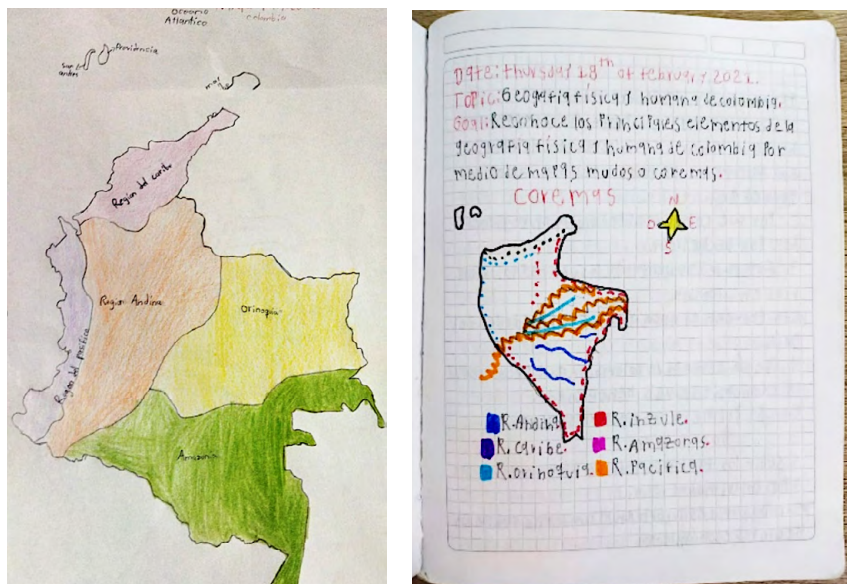 Oceano
Atlantico
colombia
San
Providencia
Region del caribe
Region Andina
Orinoquia
Region del pacifico
Amazonia
Date: thursday 18th of february 2021.
Topic: Geogafia física y humana de colombia.
Goal: Reconoce los Principales elementos de la
geografia física y humana de colombia Por
medio de mapas mudos o coremas.
coremas
N
O E
S
R. Andina R. inzule.
R. caribe. R. Amazonas.
R. orinoquia. R. Pacifica.